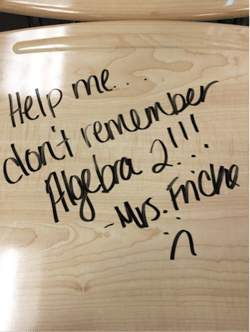 Help me...
don't remember
Algebra 2!!!
-Mrs. Fricke
:(